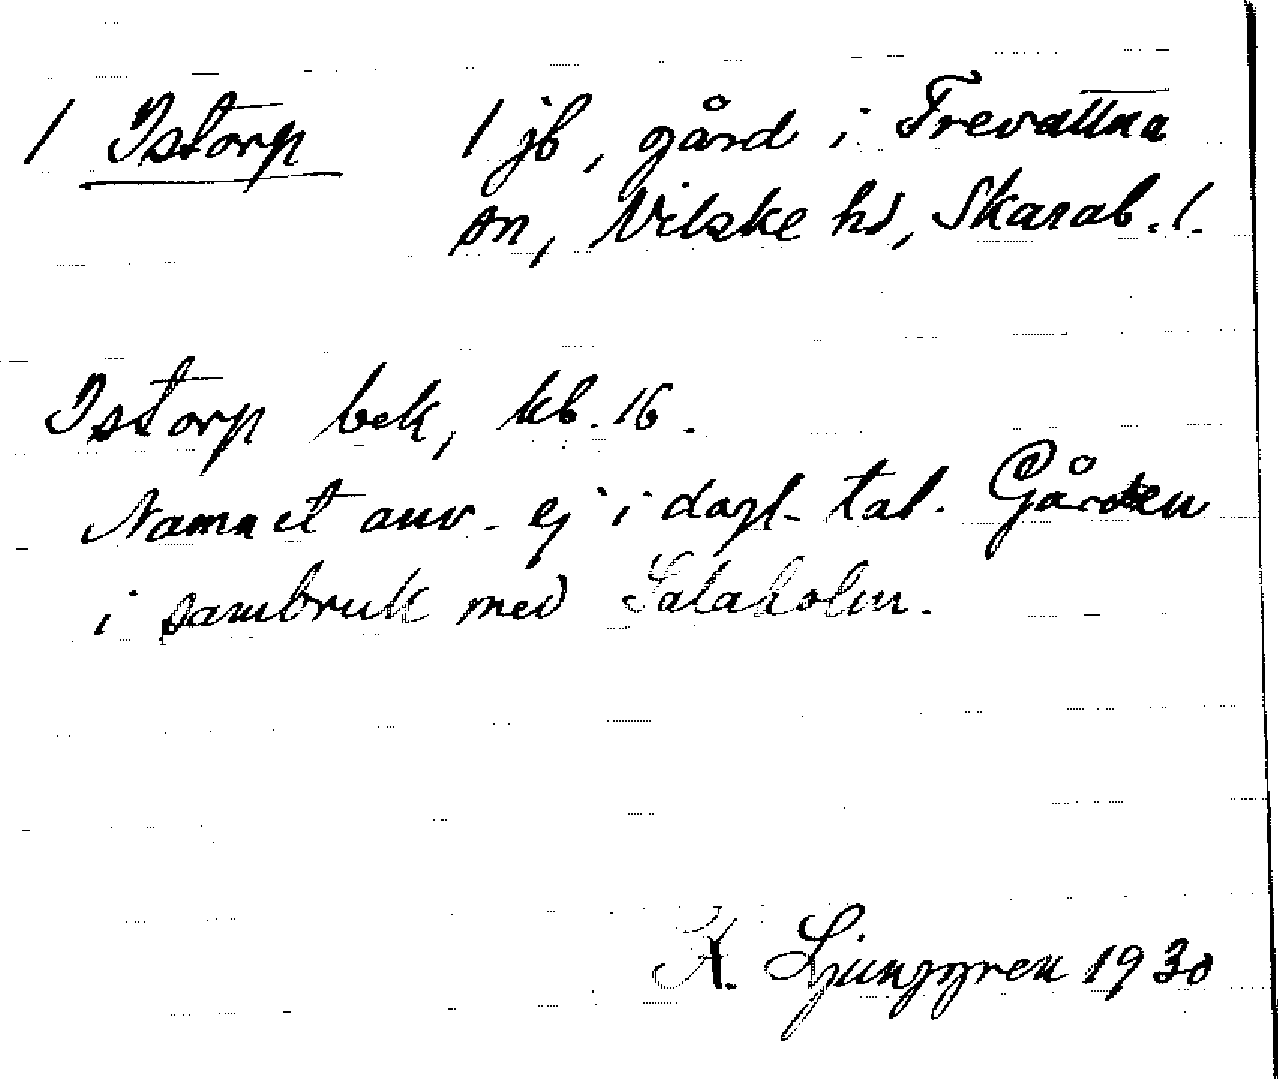 / Istorp / jb, gård i Trevattna
sn, Vilske hd, Skarab. l.
Istorp bek, kb. 16.
Namnet anv. ej i dagl. tal. Gården
i sambruk med Salaholm.
K. Ljunggren 1930